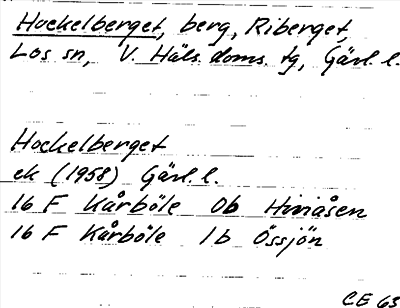 Hockelberget, berg, Riberget,
Los sn, V. Häls. doms. tg, Gävl. l.
Hockelberget
ek (1958) Gävl. l.
16 F Kårböle 0b Hiviåsen
16 F Kårböle 1b Össjön
CE 63